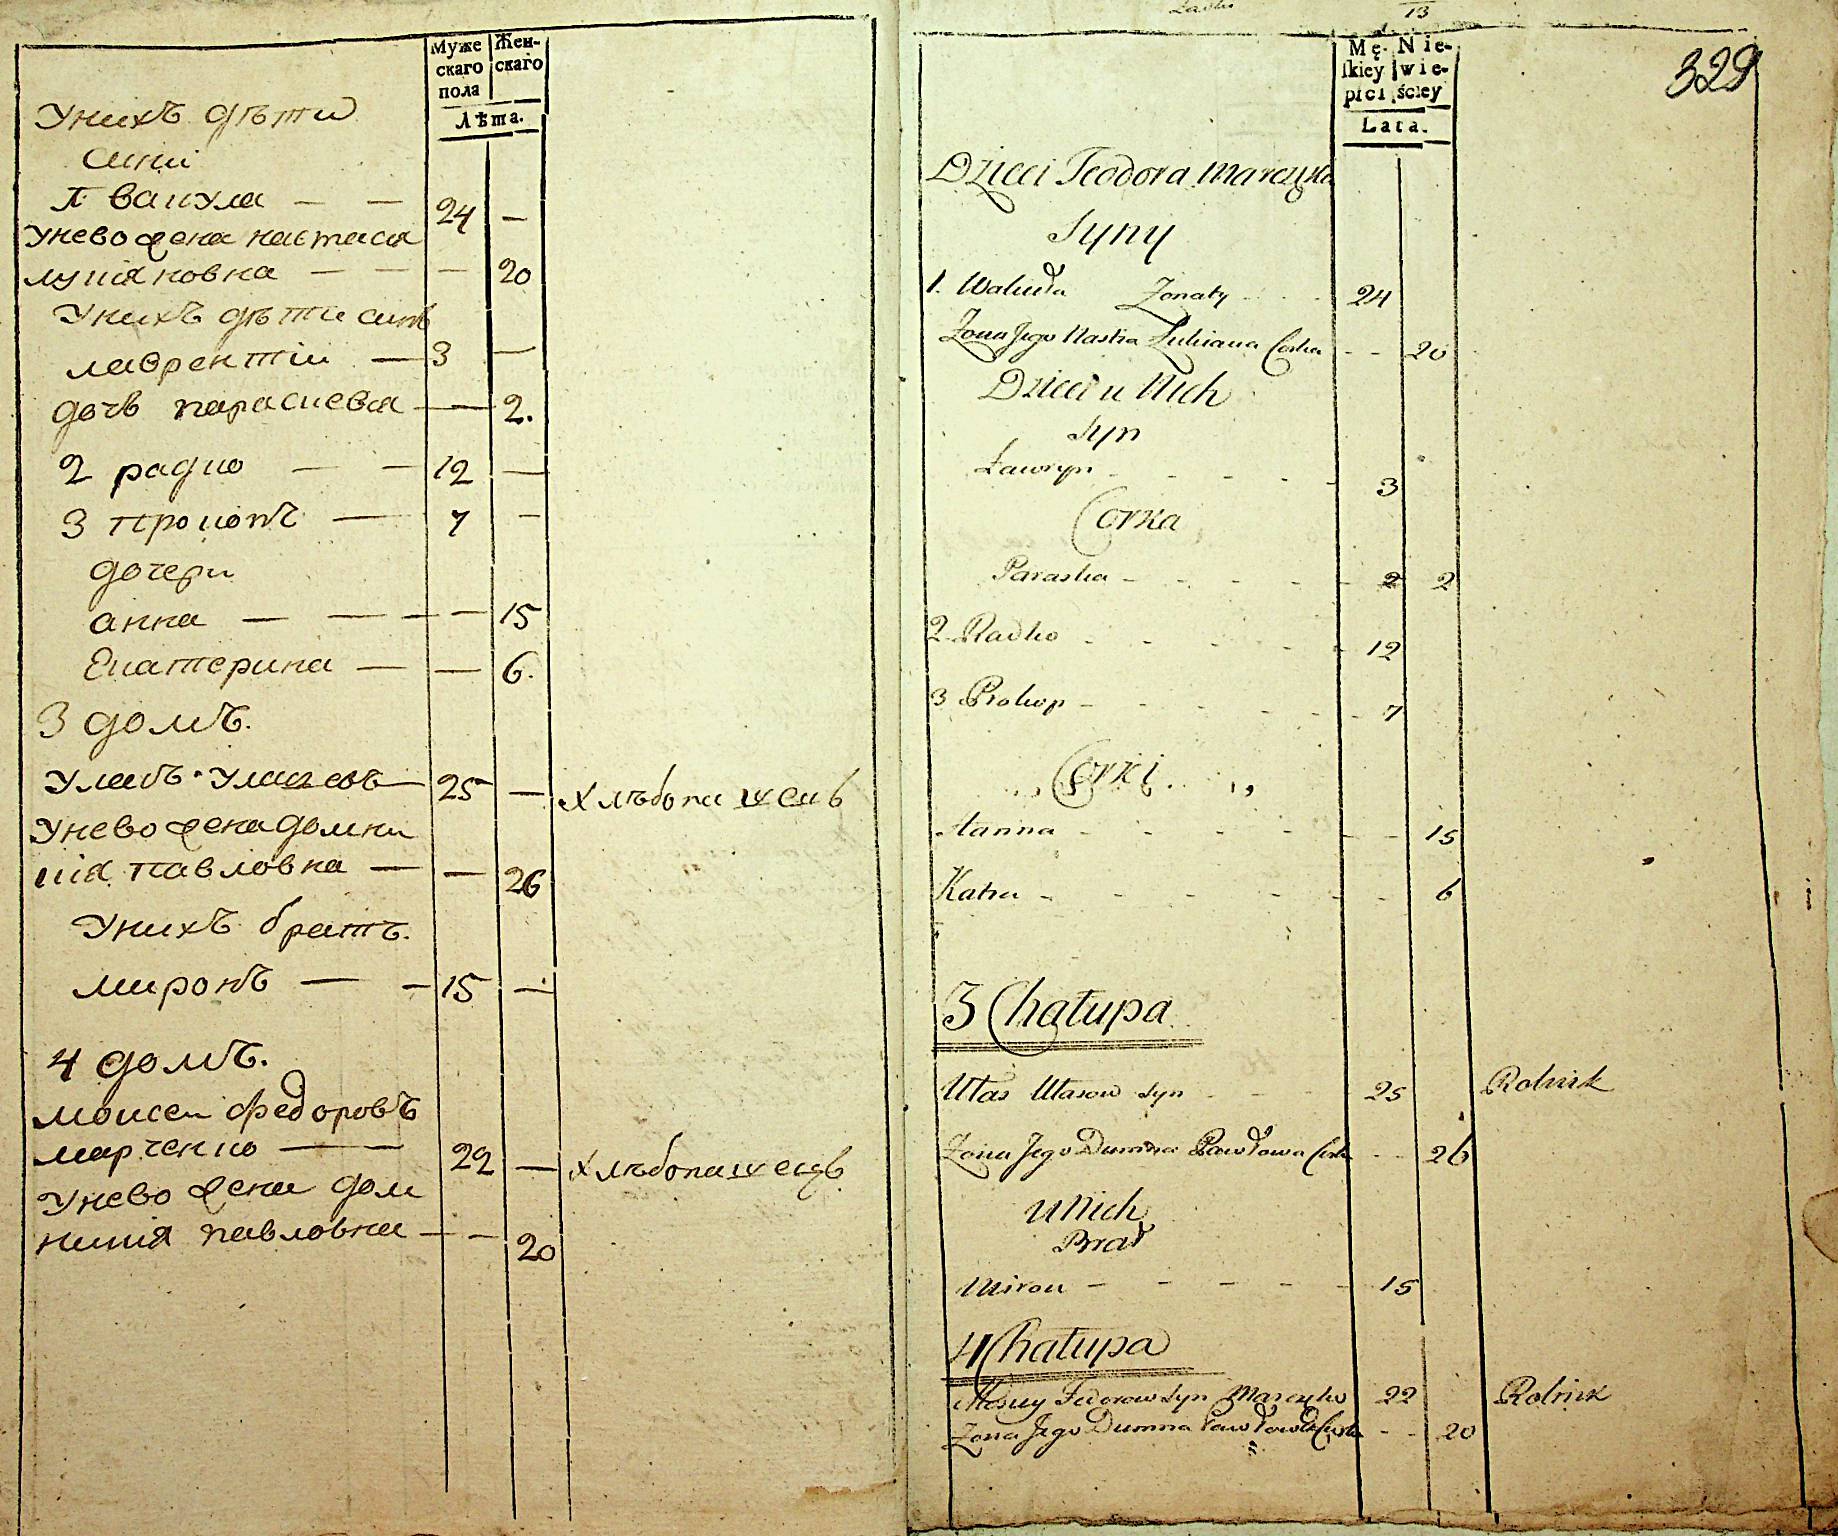 Муже
скаго
пола
Жен-
скаго
Лѣта.
Унихъ дѣти
сини
1. вакула — — 24 —
унево жена настасия
лукiяновка — — — 20
Унихъ дѣти синъ
лаврентiи — 3 —
дочъ параскевия — 2.
2 радко — — 12 —
3 прокопъ — 7 —
дочери
анна — — — — 15
Екатерина — — 6.
3 домъ.
Уласъ Уласовъ — 25 — хлѣбопашецъ
Унево жена домни
кiя павловна — — 26
Унихъ братъ.
миронъ — — 15 —
4 домъ.
моисеи федоровъ
марченко — — 22 — хлѣбопашецъ
Унево жена дом
никия павловна — — 20
13
329
Mę-
skiey
płci
Nie-
wie-
ściey
Lata.
Dzieci Teodora Marczyka
Syny
1. Wakuła Zonaty 24
Zona Jego Nastia Łukiana Corka 20
Dzieci u Nich
Syn
Ławryn 3
Corka
Paraska 2 2
2 Radko 12
3 Prokop 7
Corki
Hanna 15
Katra 6
3 Chałupa
Ułas Ułasow Syn 25 Rolnik
Zona Jego Dumna Pawłowa Corka 26
U Nich
Brat
Miron 15
4 Chałupa
Mosiey Fedorow Syn Marczyko 22 Rolnik
Zona Jego Dumna Pawłowa Corka 20